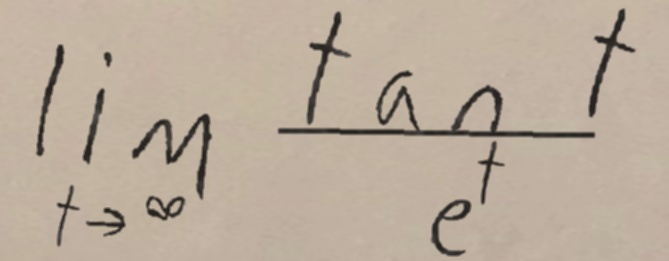 lim tan t
t→∞ e^t